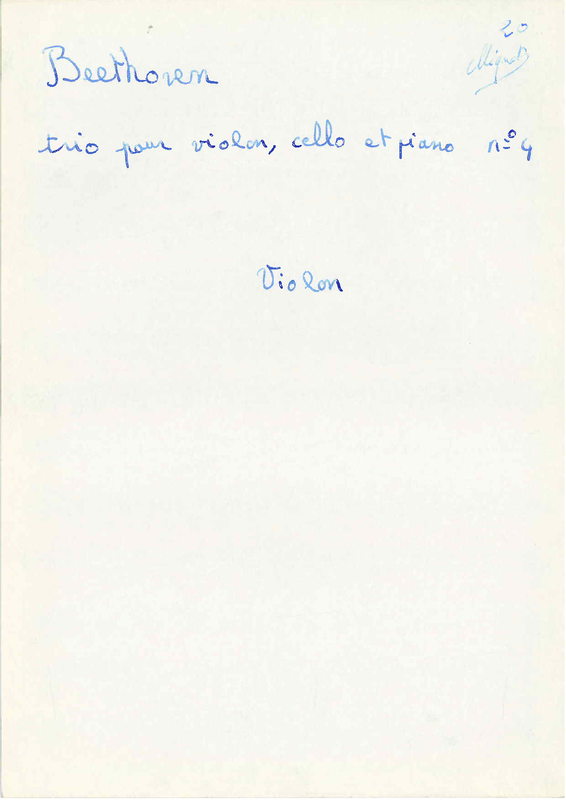 20
Beethoven
trio pour violon, cello et piano n° 4
Violon